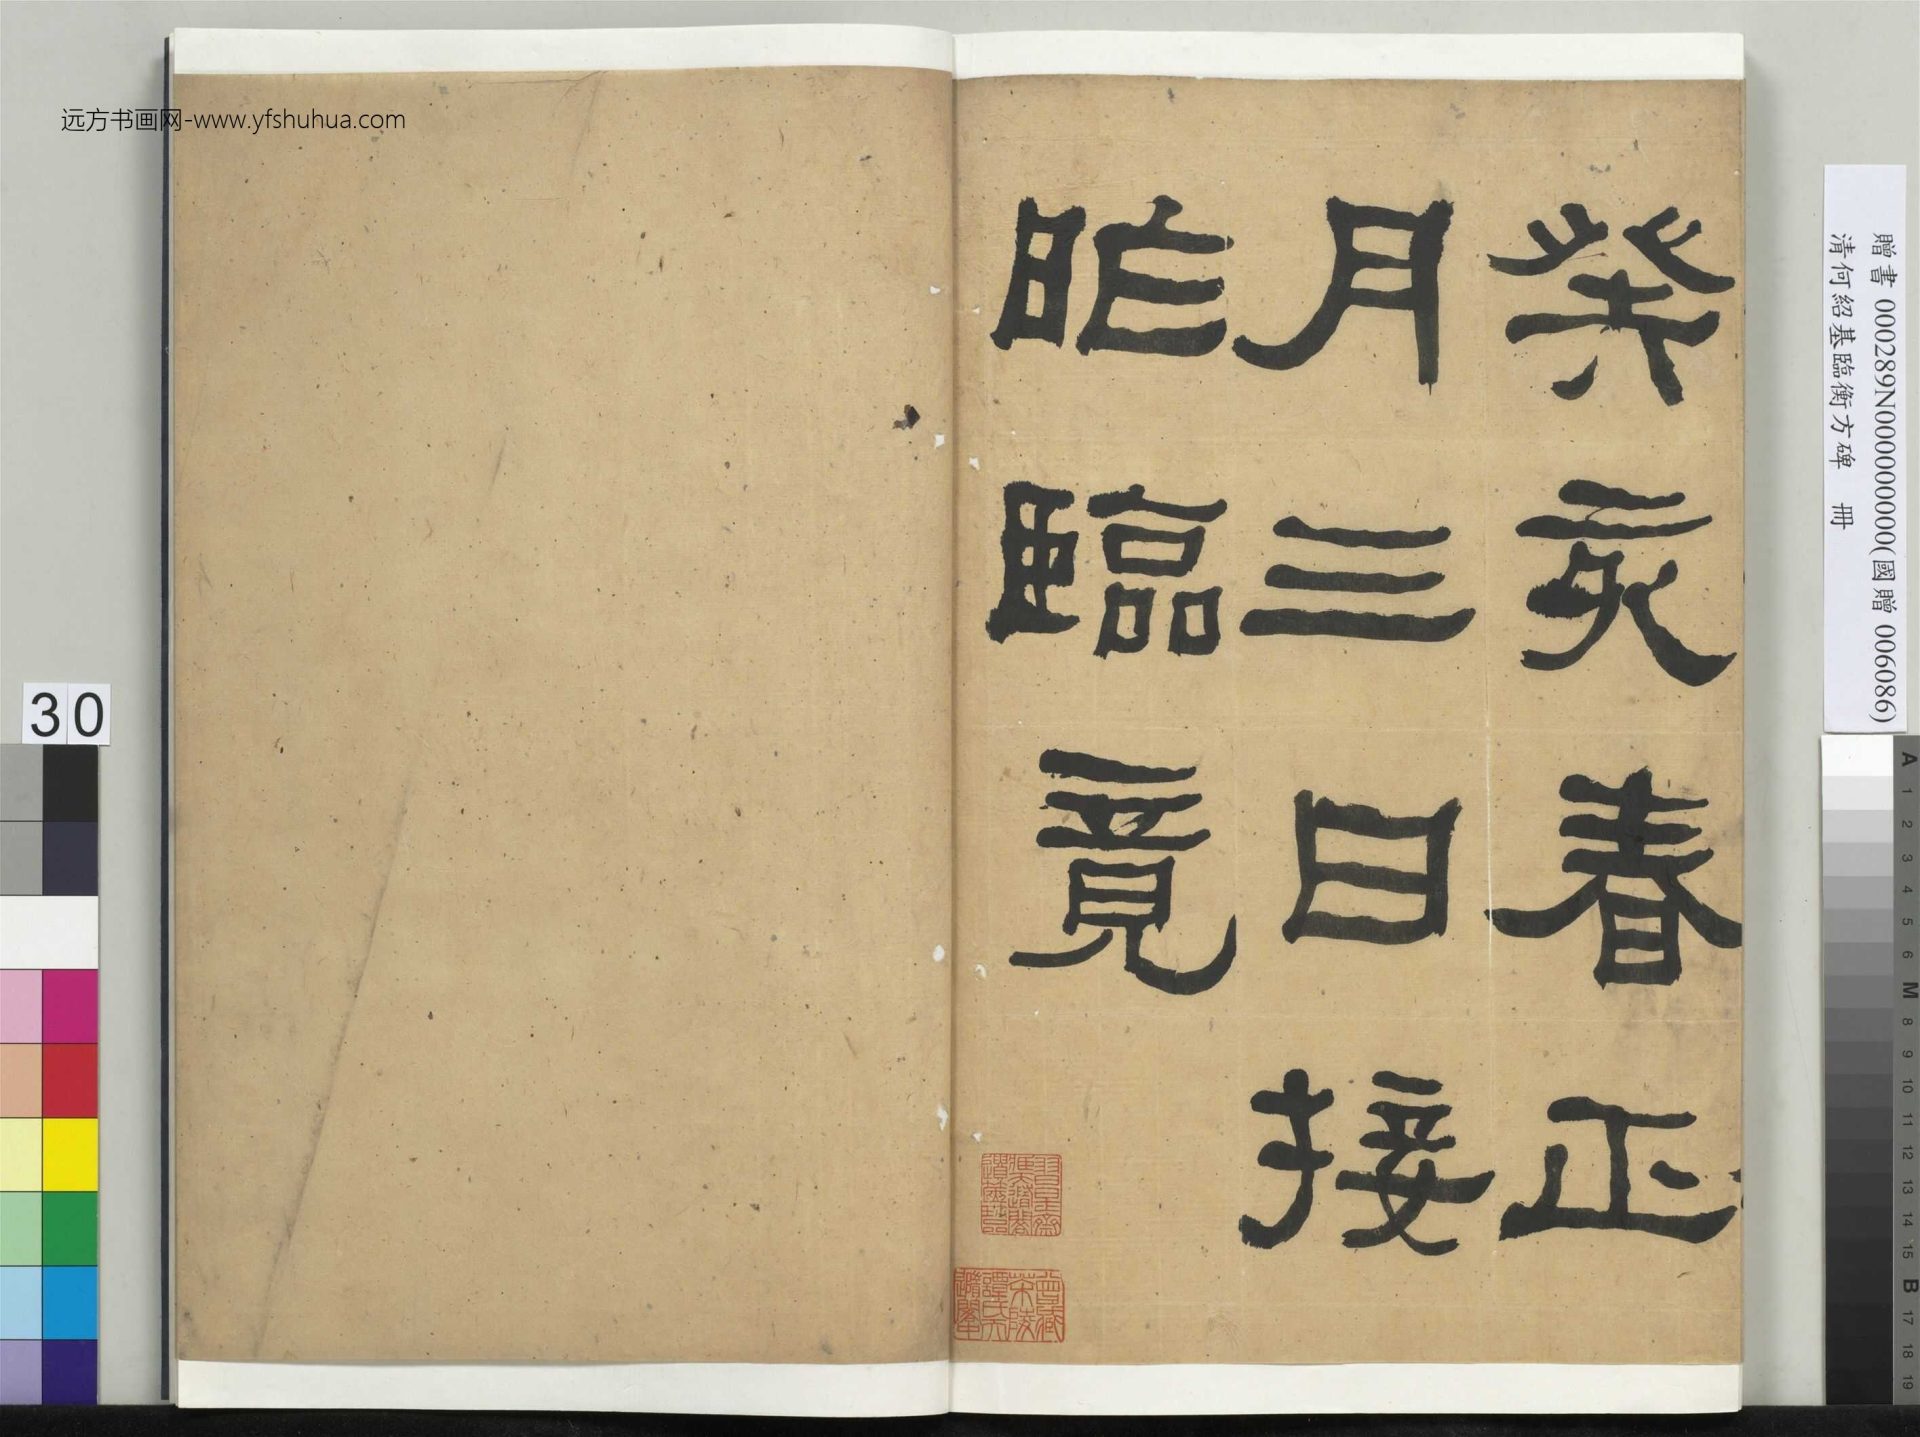 癸亥春正
月三日接
昨臨竟
远方书画网-www.yfshuhua.com
贈書 000289N000000000(國贈 006086)
清何紹基臨衡方碑 冊
30
A
1
2
3
4
5
6
M
8
9
10
11
12
13
14
15
B
17
18
19